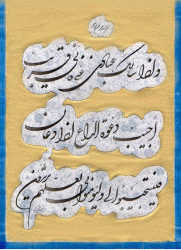 و اذا سالک عبادی عنی فانی قریب
اجیب دعوة الداع اذا دعان
فلیستجیبوا لی و لیؤمنوا بی لعلهم یرشدون